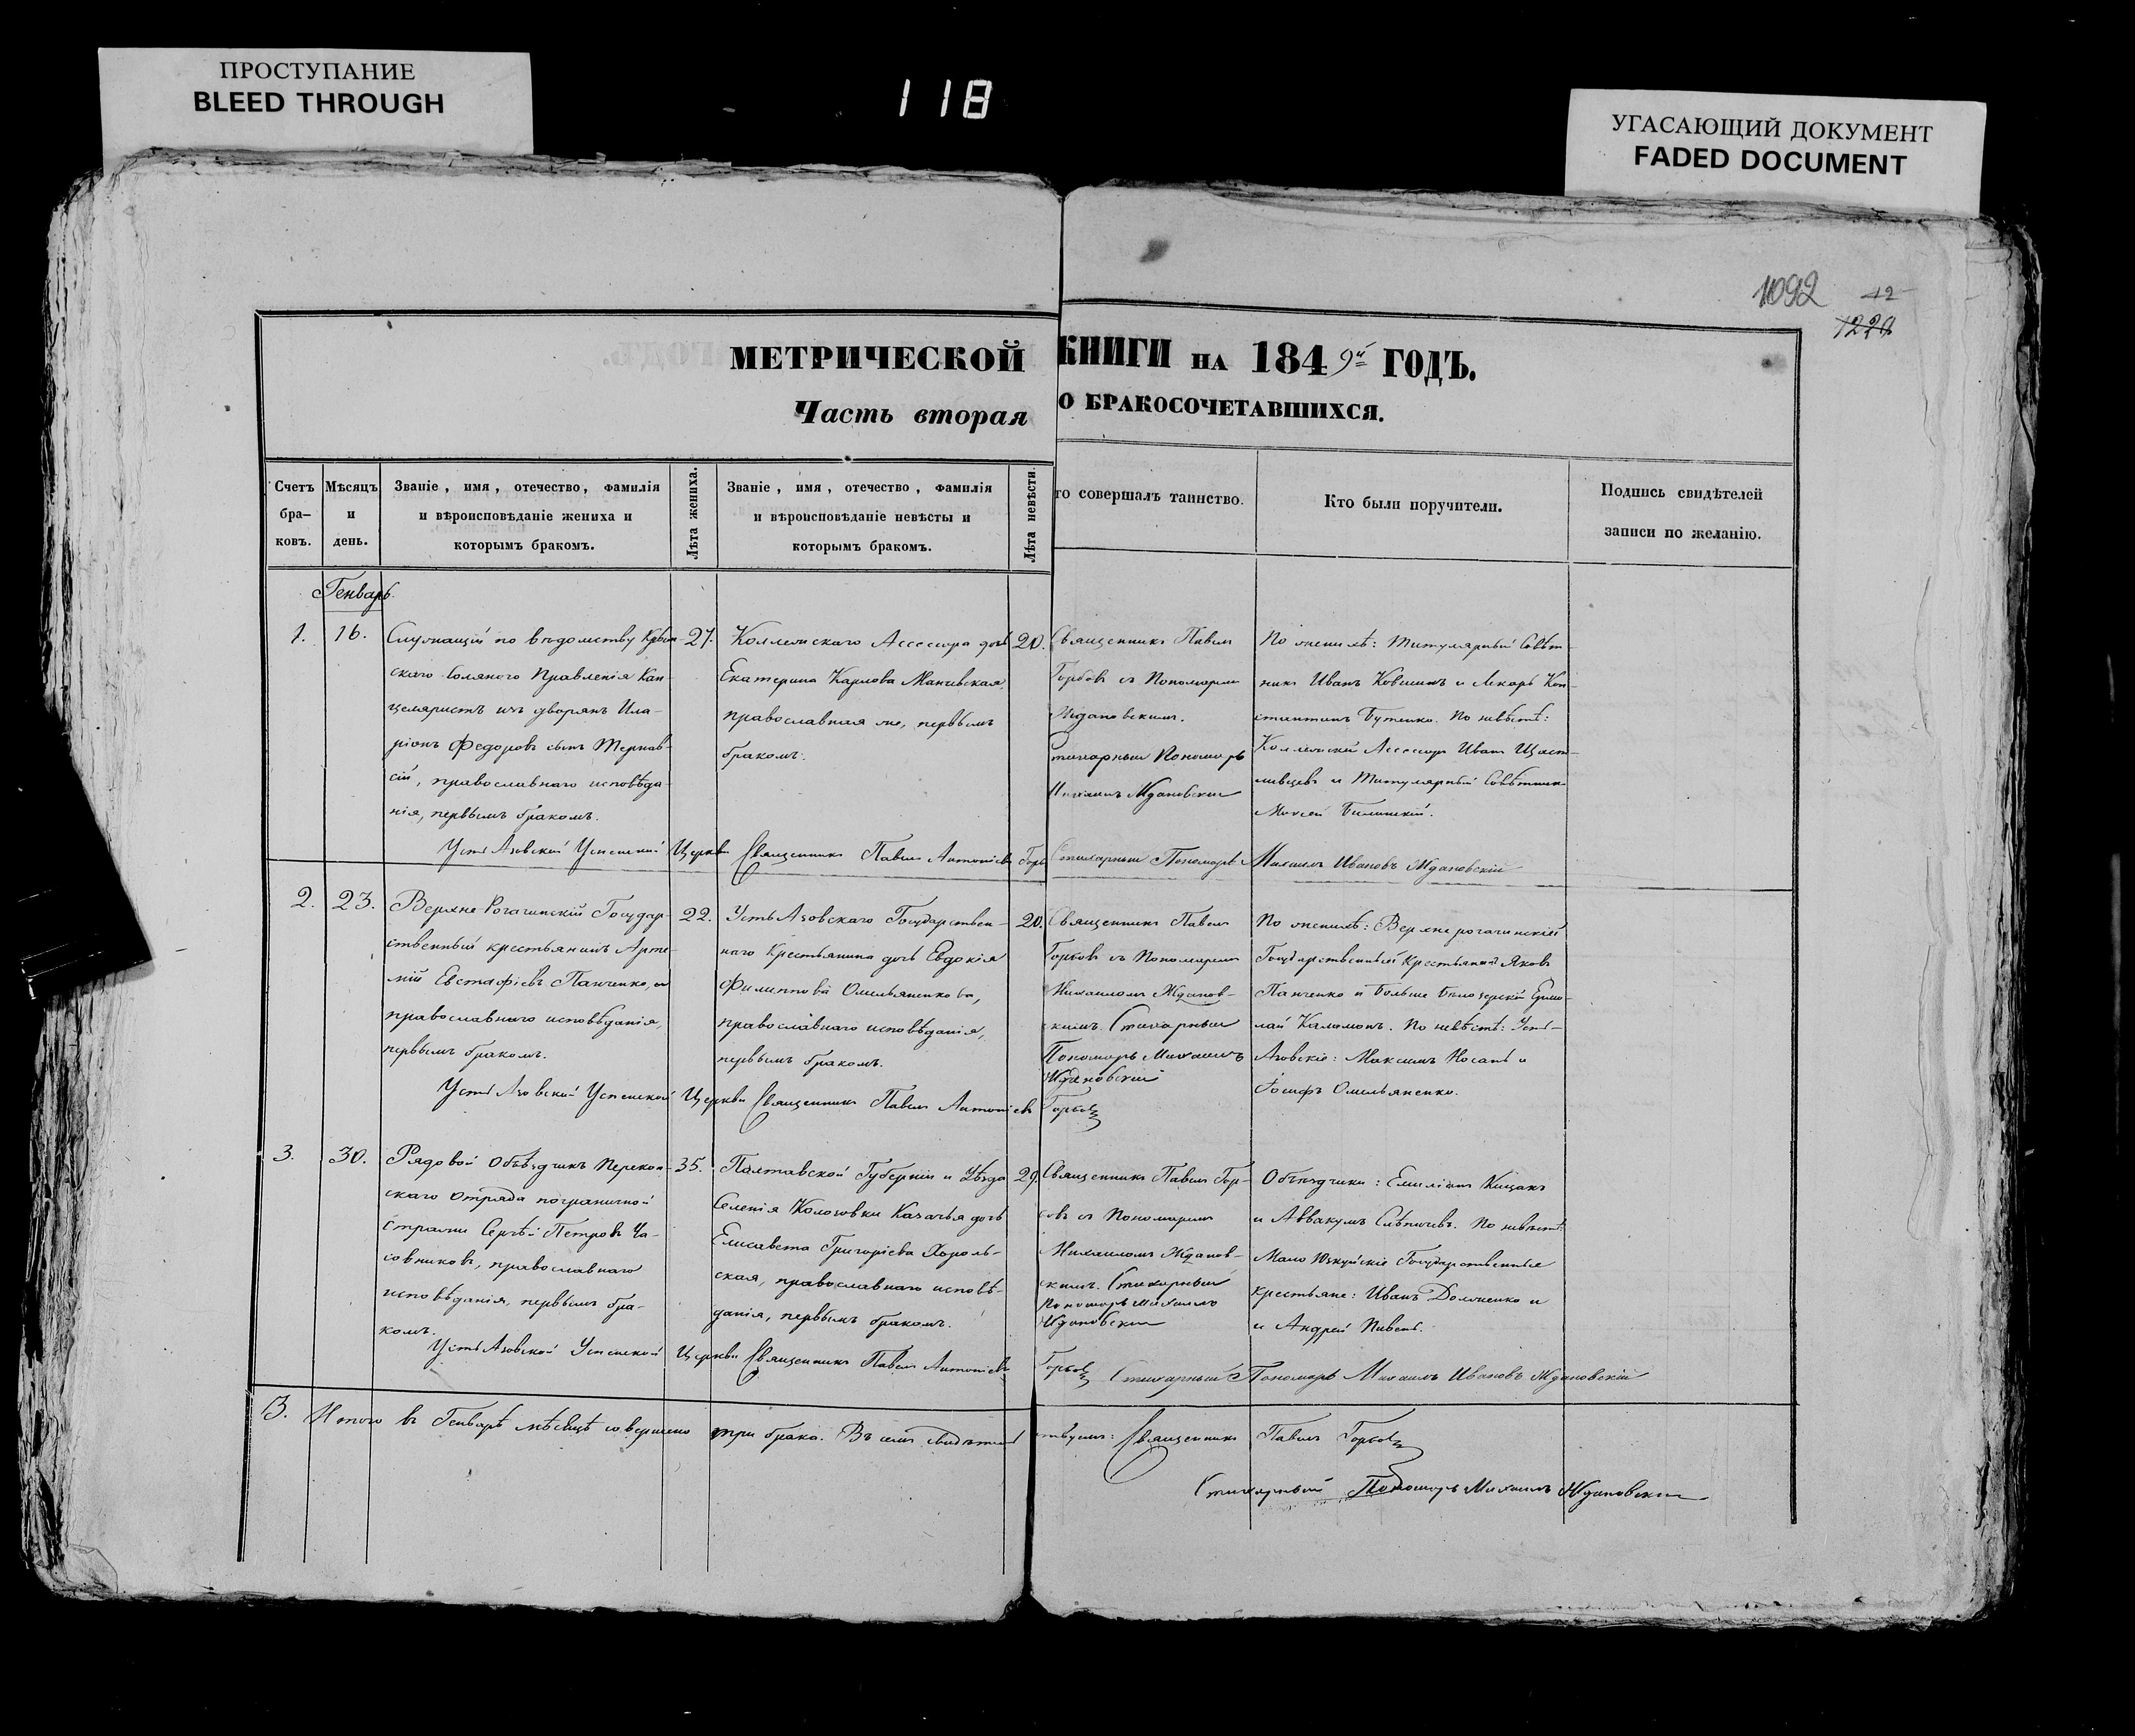 ПРОСТУПАНИЕ
BLEED THROUGH
118
УГАСАЮЩИЙ ДОКУМЕНТ
FADED DOCUMENT
1092
12
МЕТРИЧЕСКОЙ КНИГИ НА 1849й ГОДЪ.
Часть вторая О БРАКОСОЧЕТАВШИХСЯ.
Счетъ
бра-
ковъ.
Мѣсяцъ
и
день.
Званіе, имя, отечество, фамилія
и вѣроисповѣданіе жениха и
которымъ бракомъ.
Лѣта жениха.
Званіе, имя, отечество, фамилія
и вѣроисповѣданіе невѣсты и
которымъ бракомъ.
Лѣта невѣсты
то совершалъ таинство.
Кто были поручители.
Подпись свидѣтелей
записи по желанію.
Генварь.
1.
16.
Служащій по вѣдомству Крым-
скаго Солянаго Правленія Кан-
целяристъ изъ дворянъ Ила-
ріонъ Федоровъ сынъ Тернав-
сій, православнаго исповѣда-
нія, первымъ бракомъ.
27.
Коллежскаго Ассесора дочь
Екатерина Карлова
православная же, первымъ
бракомъ.
20.
Священникъ Павелъ
Горбовъ съ Пономаремъ
Ждановскимъ.
Стихарный Пономарь
Михаилъ Ждановскій
По женихѣ: Титулярный Совѣт-
никъ Иванъ и Лекарь Кон-
стантинъ Бутенко. По невѣстѣ:
Коллежскій Ассесоръ Иванъ Щаст-
ливцевъ и Титулярный Совѣтникъ
Моисей
Усть Азовской Успенской Церкви Священникъ Павелъ Антоніевъ Горб
Стихарный Пономарь Михаилъ Ивановъ Ждановскій
2.
23.
Верхне Рогачинскій Государ-
ственный крестьянинъ Арте-
мій Евстафіевъ Панченко,
православнаго исповѣданія,
первымъ бракомъ.
22.
Усть Азовскаго Государствен-
наго Крестьянина дочь Евдокія
Филиппова Омельяненкова,
православнаго исповѣданія,
первымъ бракомъ.
20.
Священникъ Павелъ
Горбовъ съ Пономаремъ
Михаиломъ Жданов-
скимъ. Стихарный
Пономарь Михаилъ
Ждановскій
По женихѣ: Верхнерогачинскій
Государственный Крестьянинъ Яковъ
Панченко и Больше Бѣлозерскій Ермо-
лай По невѣстѣ: Усть-
Азовскіе: Максимъ Носань и
Іосифъ Омельяненко.
Усть Азовской Успенской Церкви Священникъ Павелъ Антоніевъ Горбовъ
3.
30.
Рядовой Объѣздчикъ Перекоп-
скаго Отряда пограничной
стражи Сергѣй Петровъ Ча-
совниковъ, православнаго
исповѣданія, первымъ бра-
комъ.
35.
Полтавской Губерніи и Уѣзда
Селенія Колозовки Казачья дочь
Елисавета Григоріева Хороль-
ская, православнаго исповѣ-
данія, первымъ бракомъ.
29.
Священникъ Павелъ Гор-
бовъ съ Пономаремъ
Михаиломъ Жданов-
скимъ. Стихарный
Пономарь Михаилъ
Ждановскій
Объѣздчики: Емиліанъ Кищакъ
и Аввакумъ По невѣстѣ
Мало Юзкуйскіе Государственные
Крестьяне: Иванъ Долженко и
и Андрей Пивень.
Усть Азовской Успенской Церкви Священникъ Павелъ Антоніевъ Горбовъ
Стихарный Пономарь Михаилъ Ивановъ Ждановскій
3. Итого въ Генварѣ мѣсяцѣ совершено три брака. Въ семъ свидѣтельствуемъ: Священникъ Павелъ Горбовъ
Стихарный Пономарь Михаилъ Ждановскій